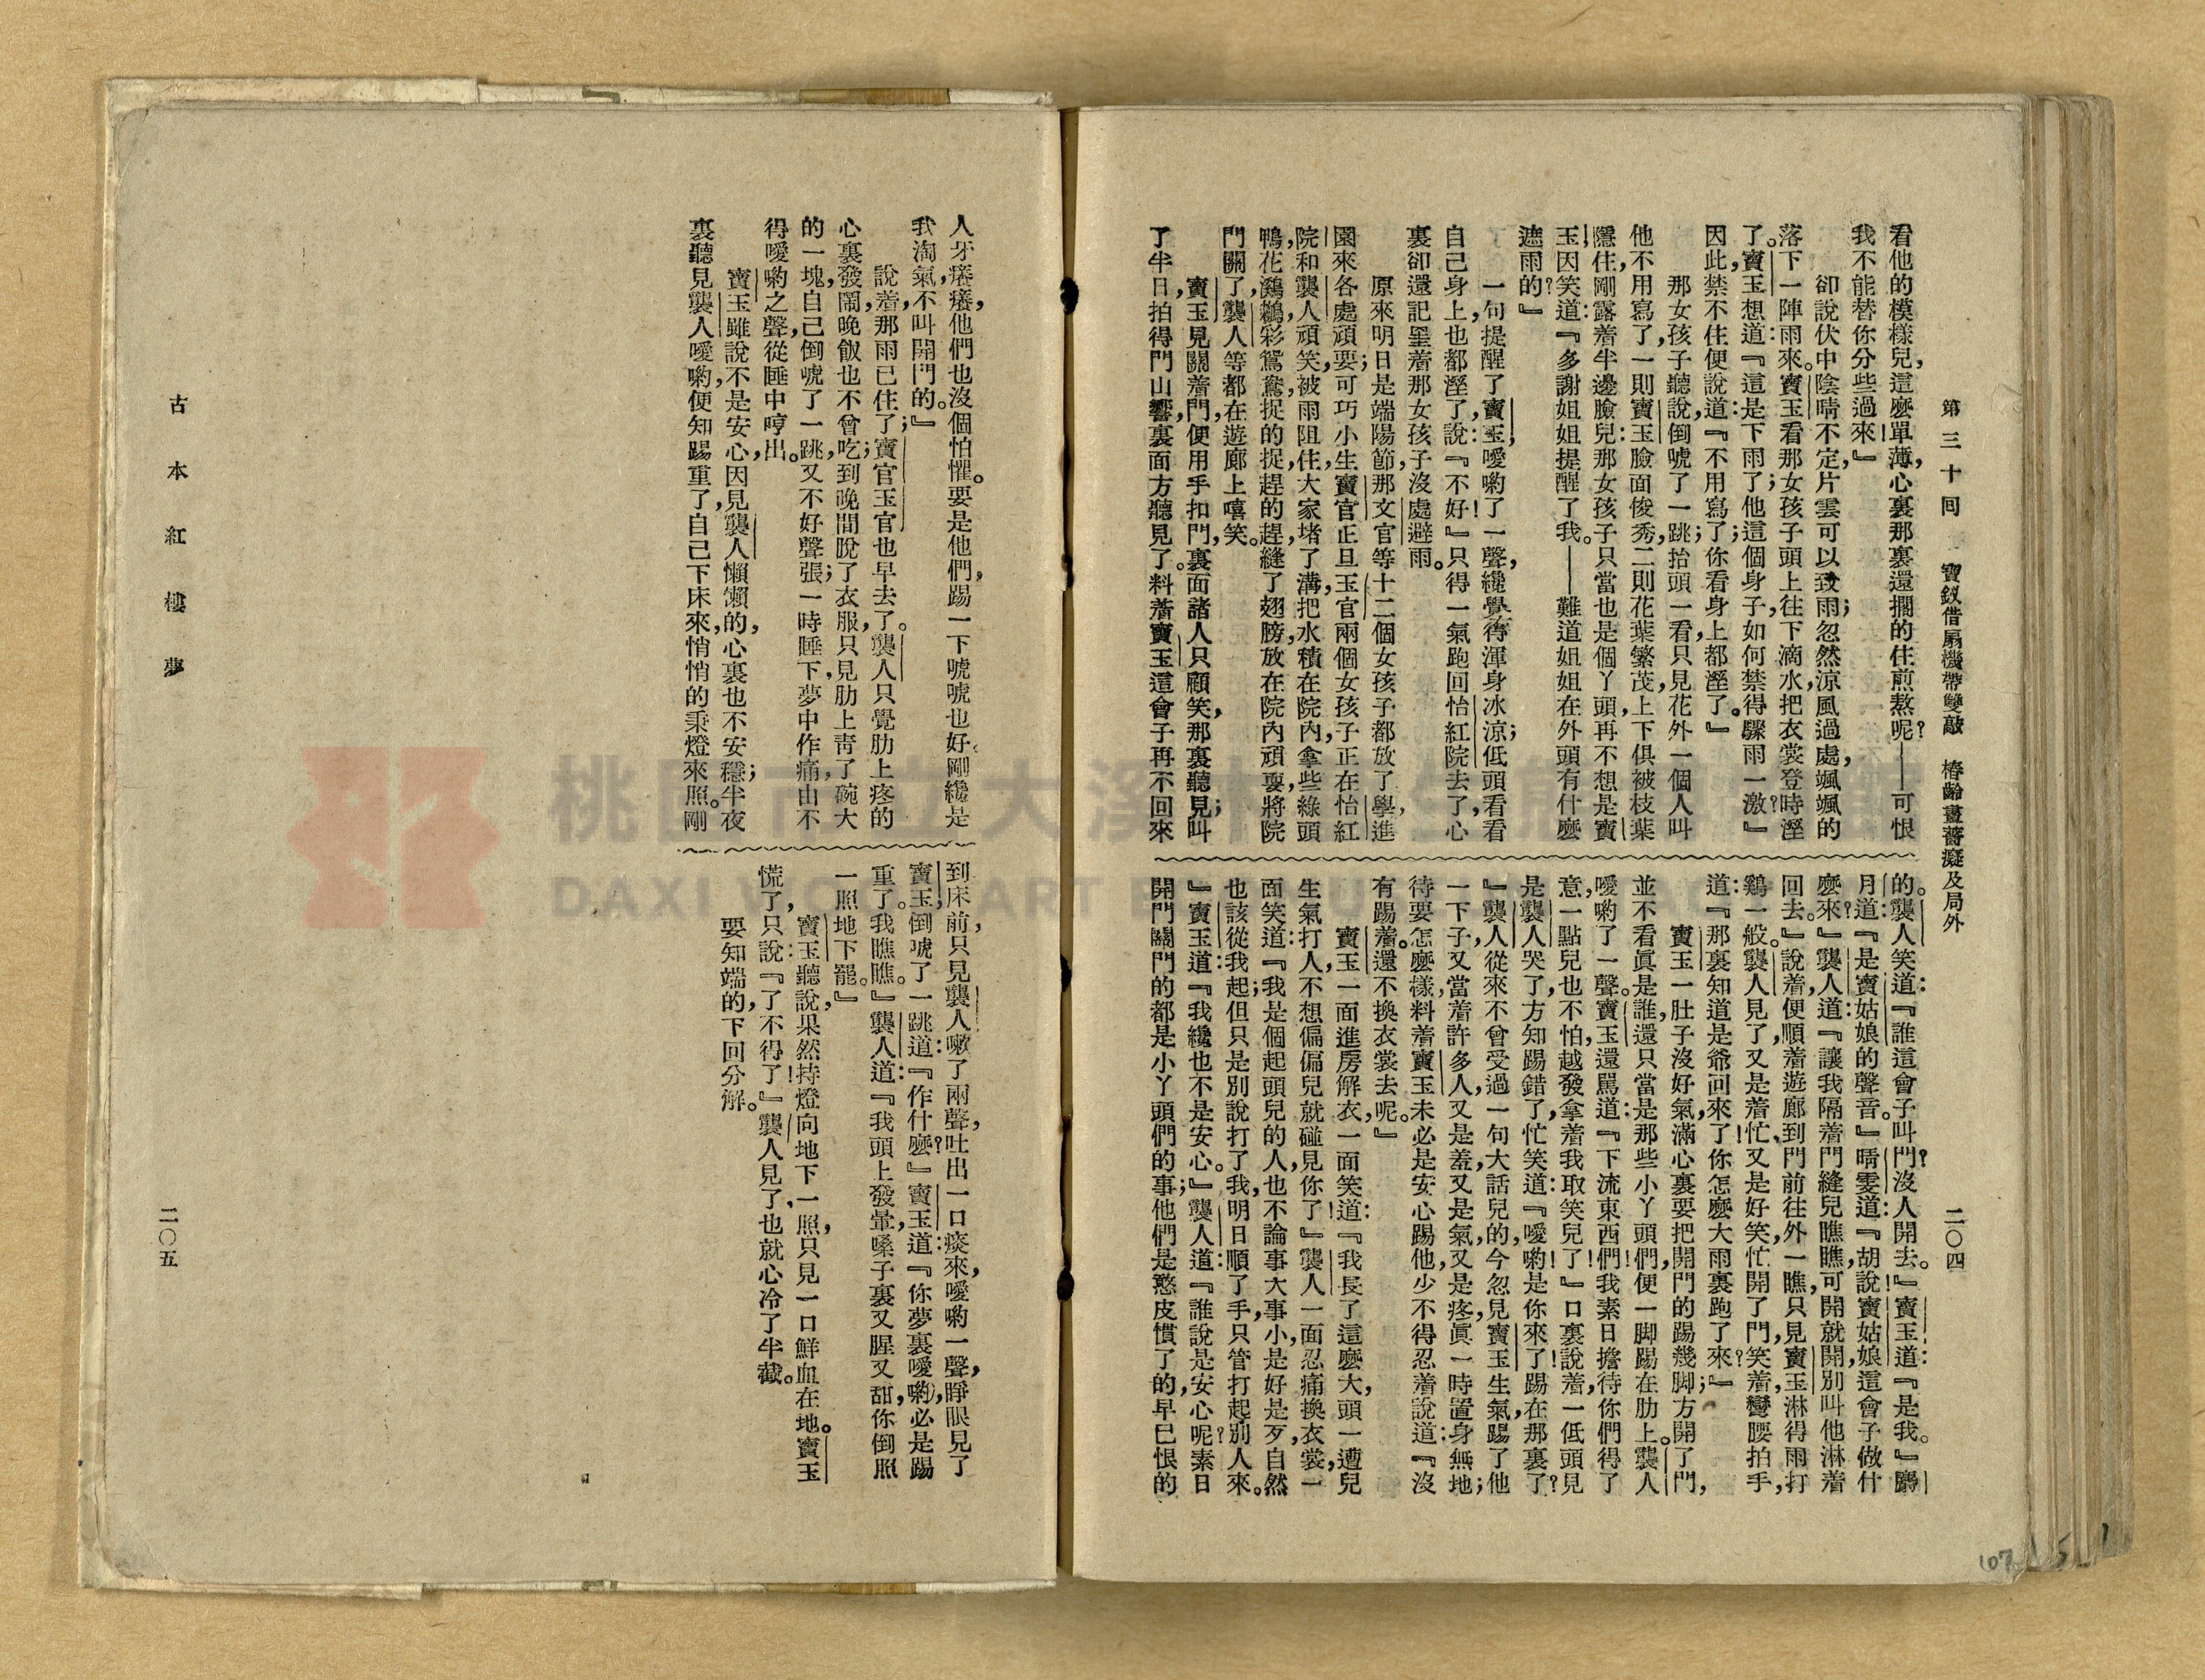 第三十回　寶釵借扇機帶雙敲　椿齡畫薔癡及局外
二〇四
看他的模樣兒，這麼單薄，心裏那裏還擱的住煎熬呢？——可恨
我不能替你分些過來！』
卻說伏中陰晴不定，片雲可以致雨；忽然涼風過處，颯颯的
落下一陣雨來。寶玉看那女孩子頭上往下滴水，把衣裳登時溼
了。寶玉想道：『這是下雨了；他這個身子，如何禁得驟雨一激？』
因此，禁不住便說道：『不用寫了；你看身上都溼了。』
那女孩子聽說，倒唬了一跳，抬頭一看，只見花外一個人叫
他不用寫了，一則寶玉臉面俊秀，二則花葉繁茂，上下俱被枝葉
隱住，剛露着半邊臉兒：那女孩子只當也是個丫頭，再不想是寶
玉，因笑道：『多謝姐姐提醒了我。——難道姐姐在外頭有什麼
遮雨的？』
一句提醒了寶玉，噯喲了一聲，纔覺得渾身冰涼；低頭看看
自己身上，也都溼了，說：『不好！』只得一氣跑回怡紅院去了，心
裏卻還記罣着那女孩子沒處避雨。
原來明日是端陽節，那文官等十二個女孩子都放了學，進
園來各處頑耍；可巧小生寶官正旦玉官兩個女孩子正在怡紅
院和襲人頑笑，被雨阻住，大家堵了溝，把水積在院內，拿些綠頭
鴨，花鸂鶒，彩鴛鴦，捉的捉，趕的趕，縫了翅膀，放在院內頑耍，將院
門關了，襲人等都在遊廊上嘻笑。
寶玉見關着門，便用手扣門，裏面諸人只顧笑，那裏聽見；叫
了半日，拍得門山響，裏面方聽見了。料着寶玉這會子再不回來
的。襲人笑道：『誰這會子叫門？沒人開去。』寶玉道：『是我。』麝
月道：『是寶姑娘的聲音。』晴雯道：『胡說！寶姑娘這會子做什
麼來？』襲人道：『讓我隔着門縫兒瞧瞧，可開就開，別叫他淋着
回去。』說着，便順着遊廊到門前往外一瞧，只見寶玉淋得雨打
鷄一般。襲人見了，又是着忙，又是好笑，忙開了門，笑着彎腰拍手，
道：『那裏知道是爺回來了！你怎麼大雨裏跑了來？』
寶玉一肚子沒好氣，滿心裏要把開門的踢幾脚；方開了門，
並不看眞是誰，還只當是那些小丫頭們，便一脚踢在肋上。襲人
噯喲了一聲。寶玉還罵道：『下流東西們！我素日擔待你們得了
意，一點兒也不怕，越發拿着我取笑兒了！』口裏說着，一低頭見
是襲人哭了，方知踢錯了，忙笑道：『噯喲！是你來了！踢在那裏了？
』襲人從來不曾受過一句大話兒的，今忽見寶玉生氣，踢了他
一下子，又當着許多人，又是羞，又是氣，又是疼，眞一時置身無地；
待要怎麼樣，料着寶玉未必是安心踢他，少不得忍着說道：『沒
有踢着。還不換衣裳去呢。』
寶玉一面進房解衣，一面笑道：『我長了這麼大，頭一遭兒
生氣打人，不想偏偏兒就碰見你了！』襲人一面忍痛換衣裳，一
面笑道：『我是個起頭兒的人，也不論事大事小，是好是歹，自然
也該從我起；但只是別說打了我，明日順了手，只管打起別人來。
』寶玉道：『我纔也不是安心。』襲人道：『誰說是安心呢？素日
開門關門的都是小丫頭們的事；他們是憨皮慣了的，早已恨的
人牙癢癢，他們也沒個怕懼。要是他們，踢一下唬唬也好。剛纔是
我淘氣，不叫開門的。』
說着，那雨已住了；寶官玉官也早去了。襲人只覺肋上疼的
心裏發鬧，晚飯也不曾吃；到晚間脫了衣服，只見肋上靑了碗大
的一塊，自己倒唬了一跳，又不好聲張；一時睡下，夢中作痛，由不
得噯喲之聲，從睡中哼出。
寶玉雖說不是安心，因見襲人懶懶的，心裏也不安穩；半夜
裏聽見襲人噯喲，便知踢重了，自己下床來，悄悄的秉燈來照。剛
到床前，只見襲人嗽了兩聲，吐出一口痰來，噯喲一聲，睜眼見了
寶玉，倒唬了一跳道：『作什麼？』寶玉道：『你夢裏噯喲，必是踢
重了。我瞧瞧。』襲人道：『我頭上發暈，嗓子裏又腥又甜，你倒照
一照地下罷。』
寶玉聽說，果然持燈向地下一照，只見一口鮮血在地。寶玉
慌了，只說：『了不得了！』襲人見了，也就心冷了半截。
要知端的，下回分解。
古本紅樓夢
二〇五
107